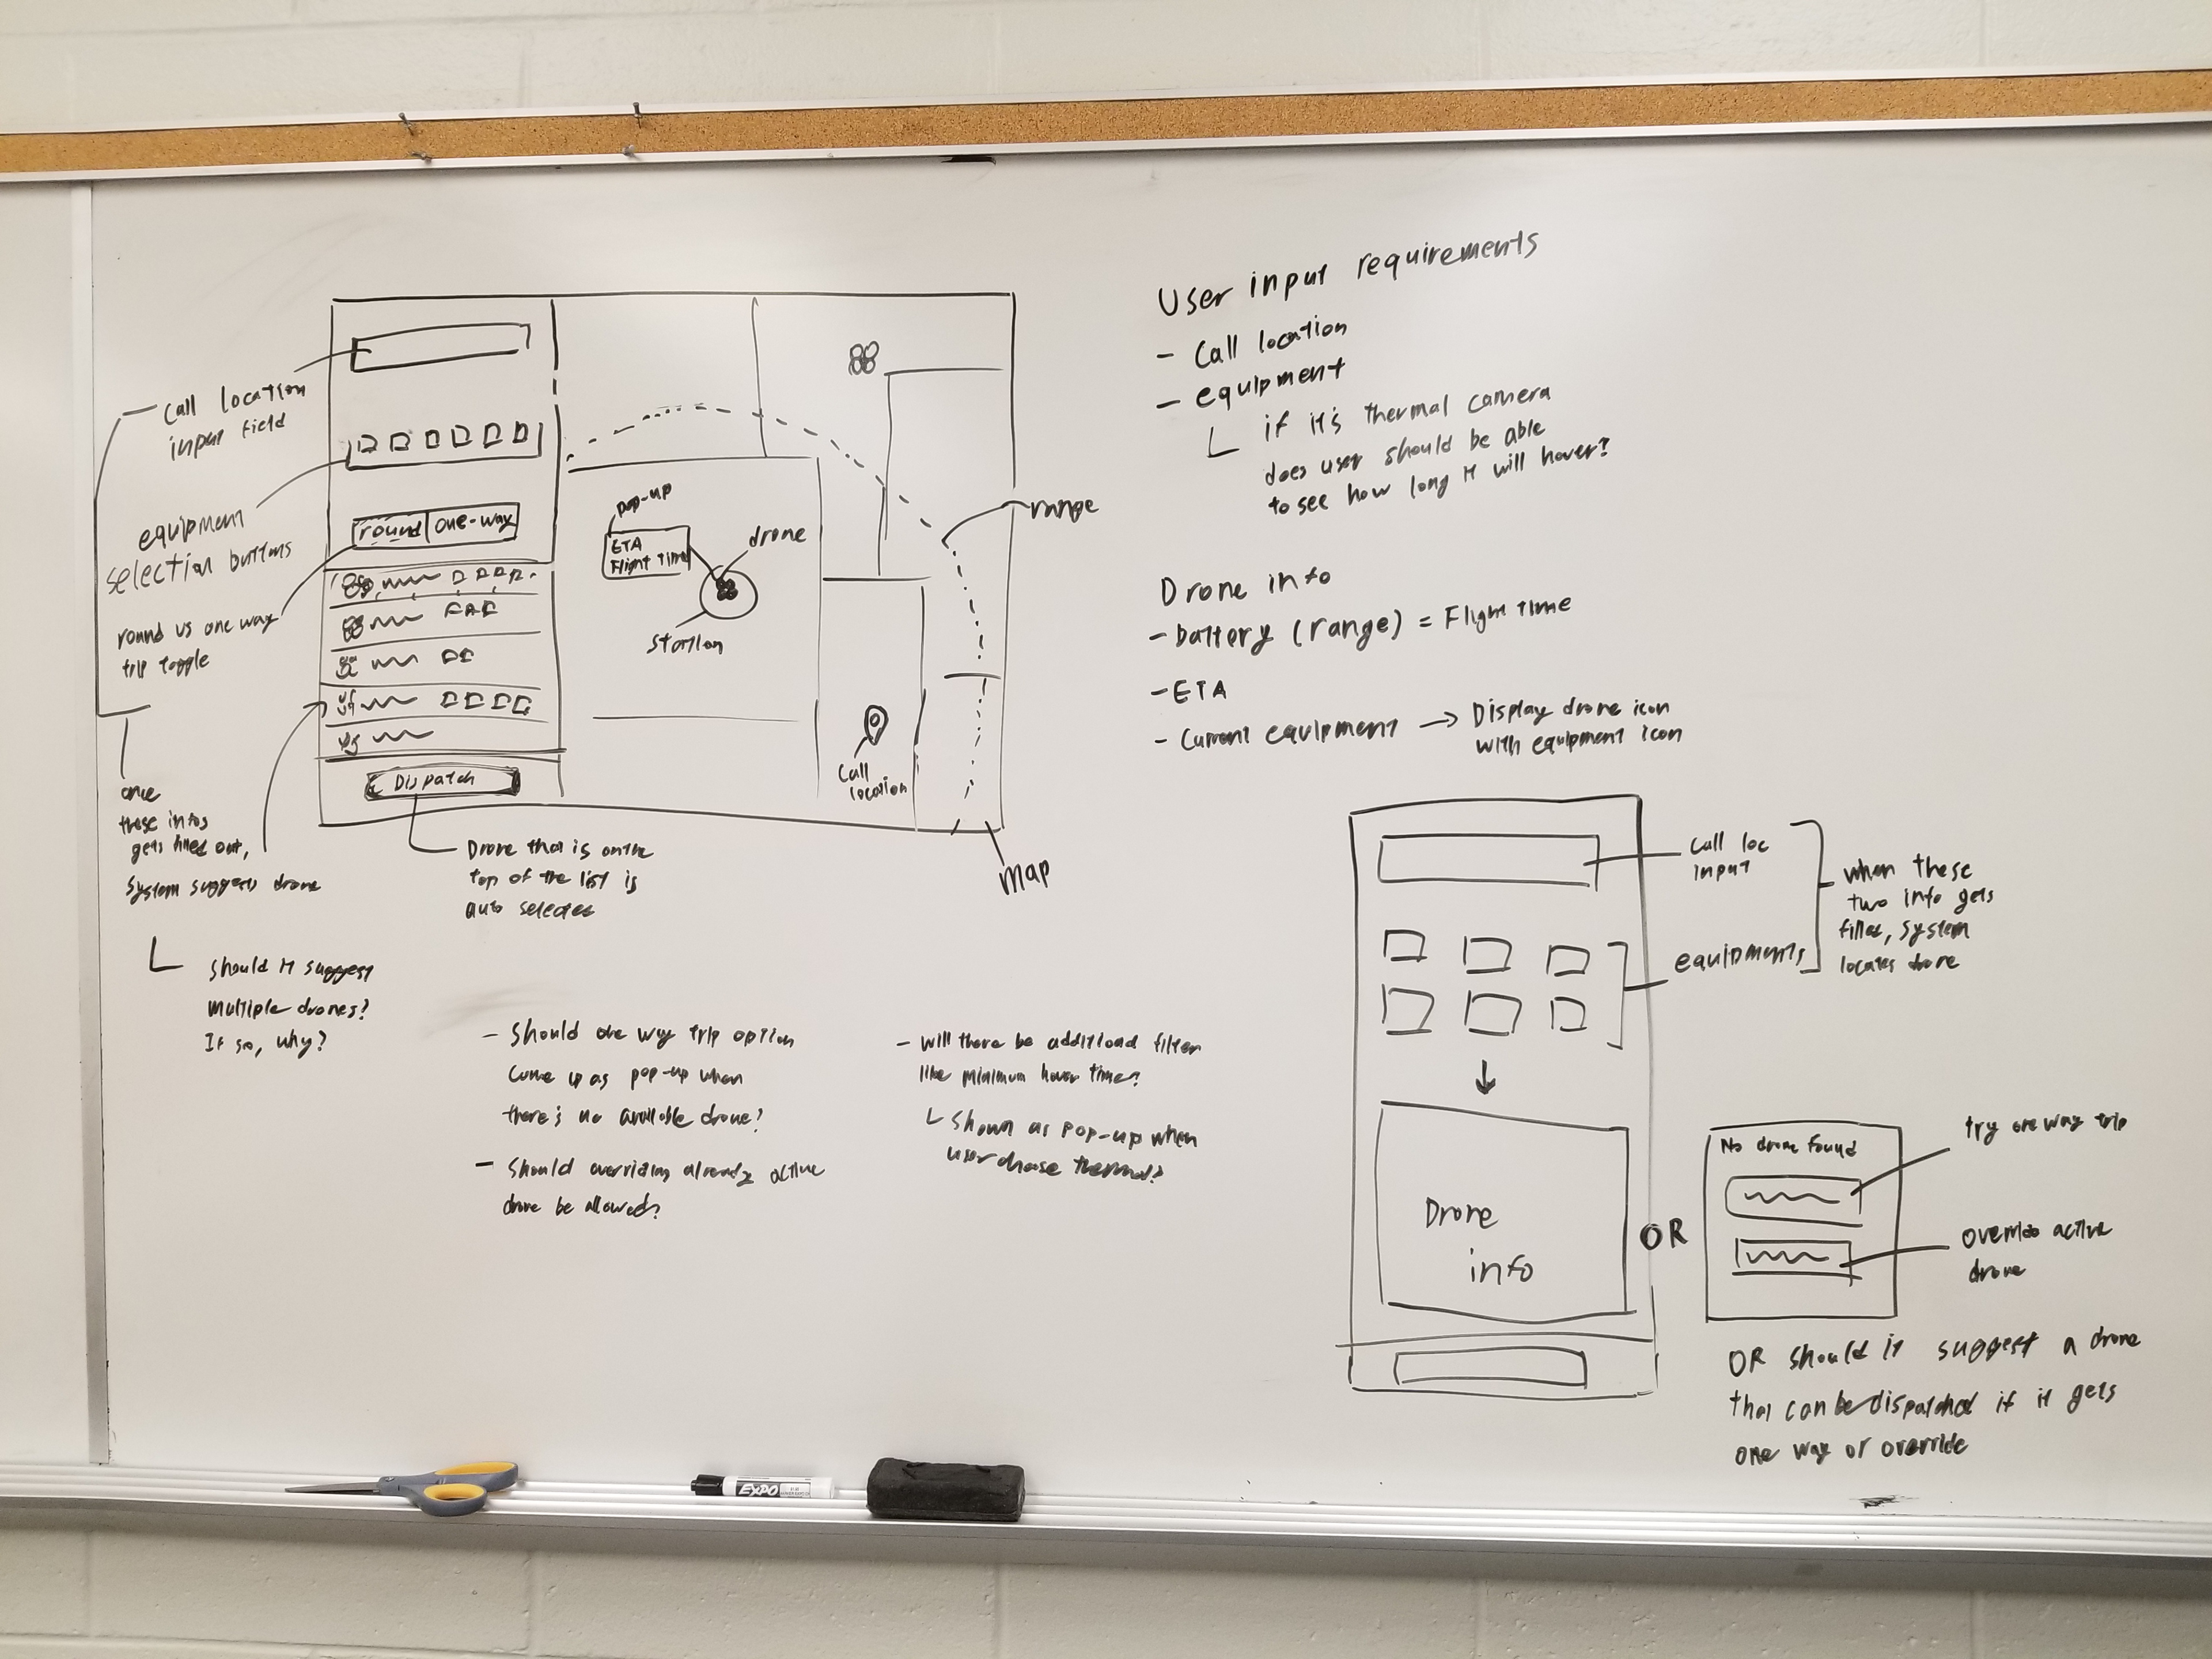 Call location
input field
equipment
selection buttons
round vs one way
trip toggle
once
these infos
gets filled out,
system suggests drone
should it suggest
multiple drones?
If so, why?
round one-way
Dispatch
Drone that is on the
top of the list is
auto selected
pop-up
ETA
Flight Time
drone
station
Call
location
range
map
- Should one way trip option
come up as pop-up when
there's no available drone?
- Should overriding already active
drone be allowed?
- will there be additional filter
like minimum hover time?
shown as pop-up when
user chose thermal?
User input requirements
- Call location
- equipment
if it's thermal camera
does user should be able
to see how long it will hover?
Drone info
- battery (range) = Flight Time
- ETA
- Current equipment → Display drone icon
with equipment icon
Call loc
input
equipments
when these
two info gets
filled, system
locates drone
↓
Drone
info
OR
No drone found
try one way trip
override active
drone
OR should it suggest a drone
that can be dispatched if it gets
one way or override
EXPO